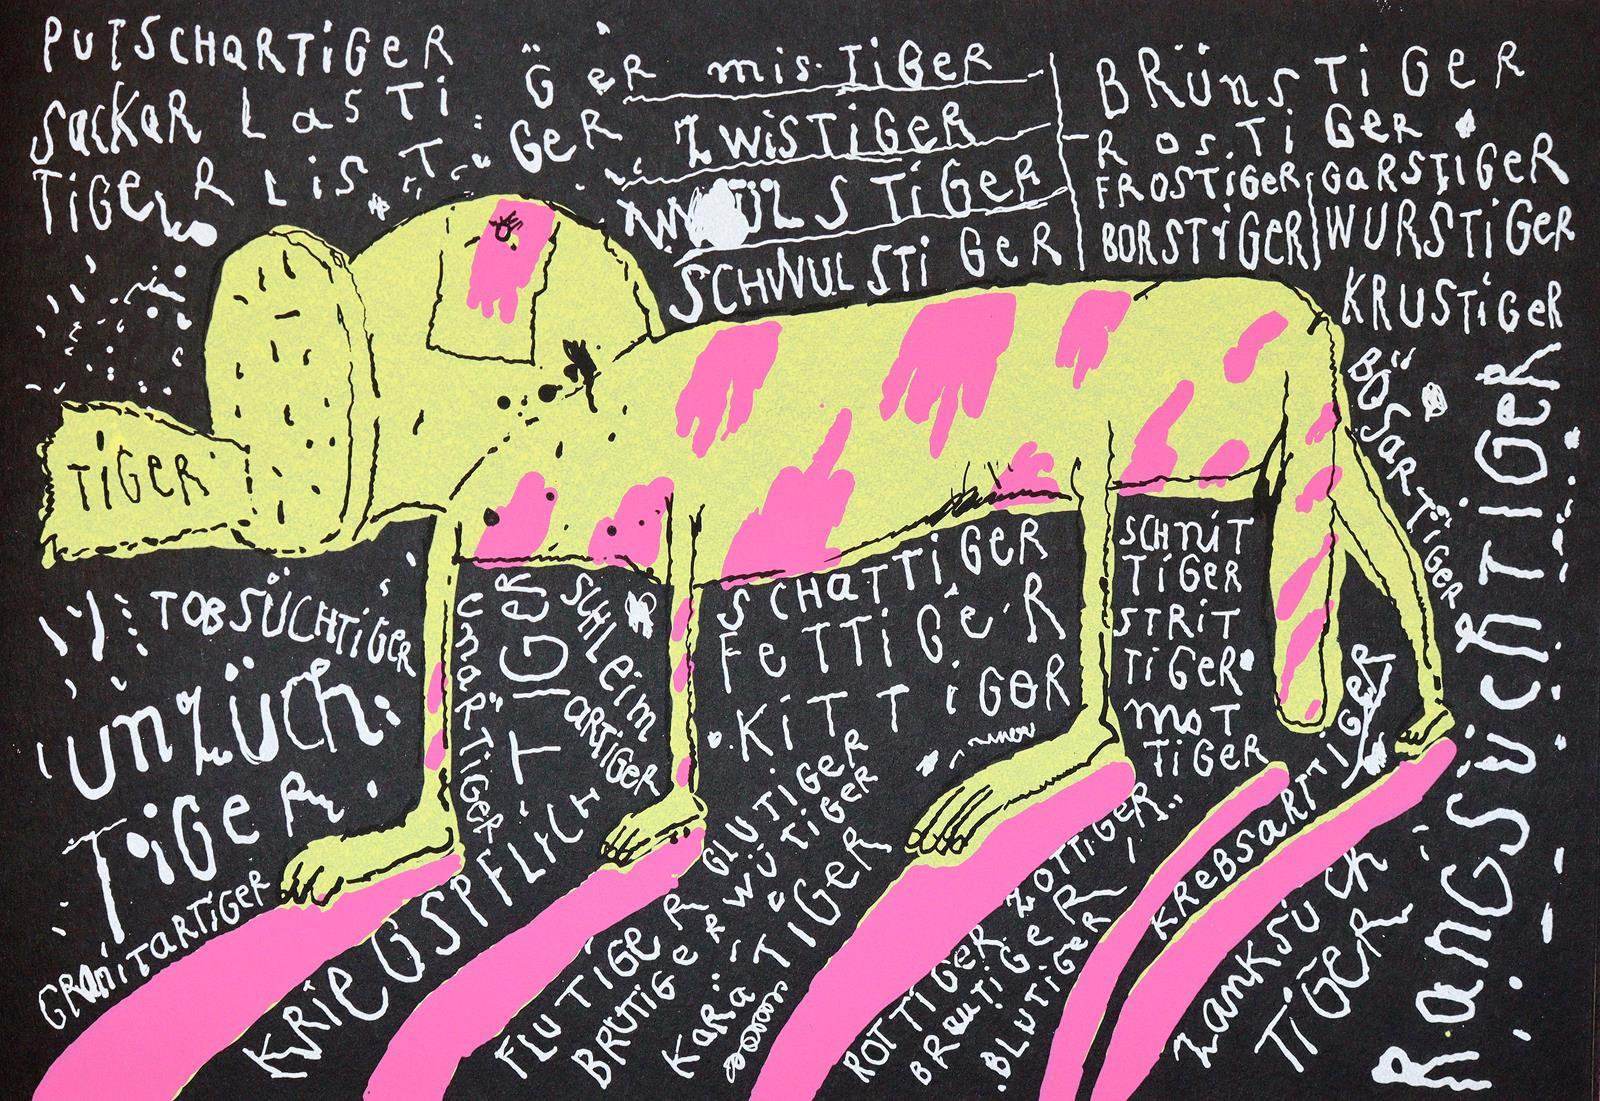 PUTSCHARTIGER
SACKAR LASTI GER
TIGER LISTIGER
misTIGER
ZWISTIGER
WÜLSTIGER
SCHWULSTIGER
BRÜNSTIGER
ROSTIGER
FROSTIGER GARSTIGER
BORSTIGER WURSTIGER
KRUSTIGER
BÖSARTIGER
RANGSÜCHTIGER
TIGER
TOBSÜCHTIGER
UNZÜCH
TIGER
GRANITARTIGER
UNARTIGER
KRIEGSPFLICHTIGER
SCHLEIM
ARTIGER
SCHATTIGER
FETTIGER
KITTIGER
SCHNIT
TIGER
STRIT
TIGER
MOT
TIGER
FLUTIGER GLUTIGER
BRUTIGER WÜTIGER
KARÄTIGER
ROTTIGER ZOTTIGER
BRAUTIGER
BLUTIGER
KREBSARTIGER
ZANKSÜCH
TIGER